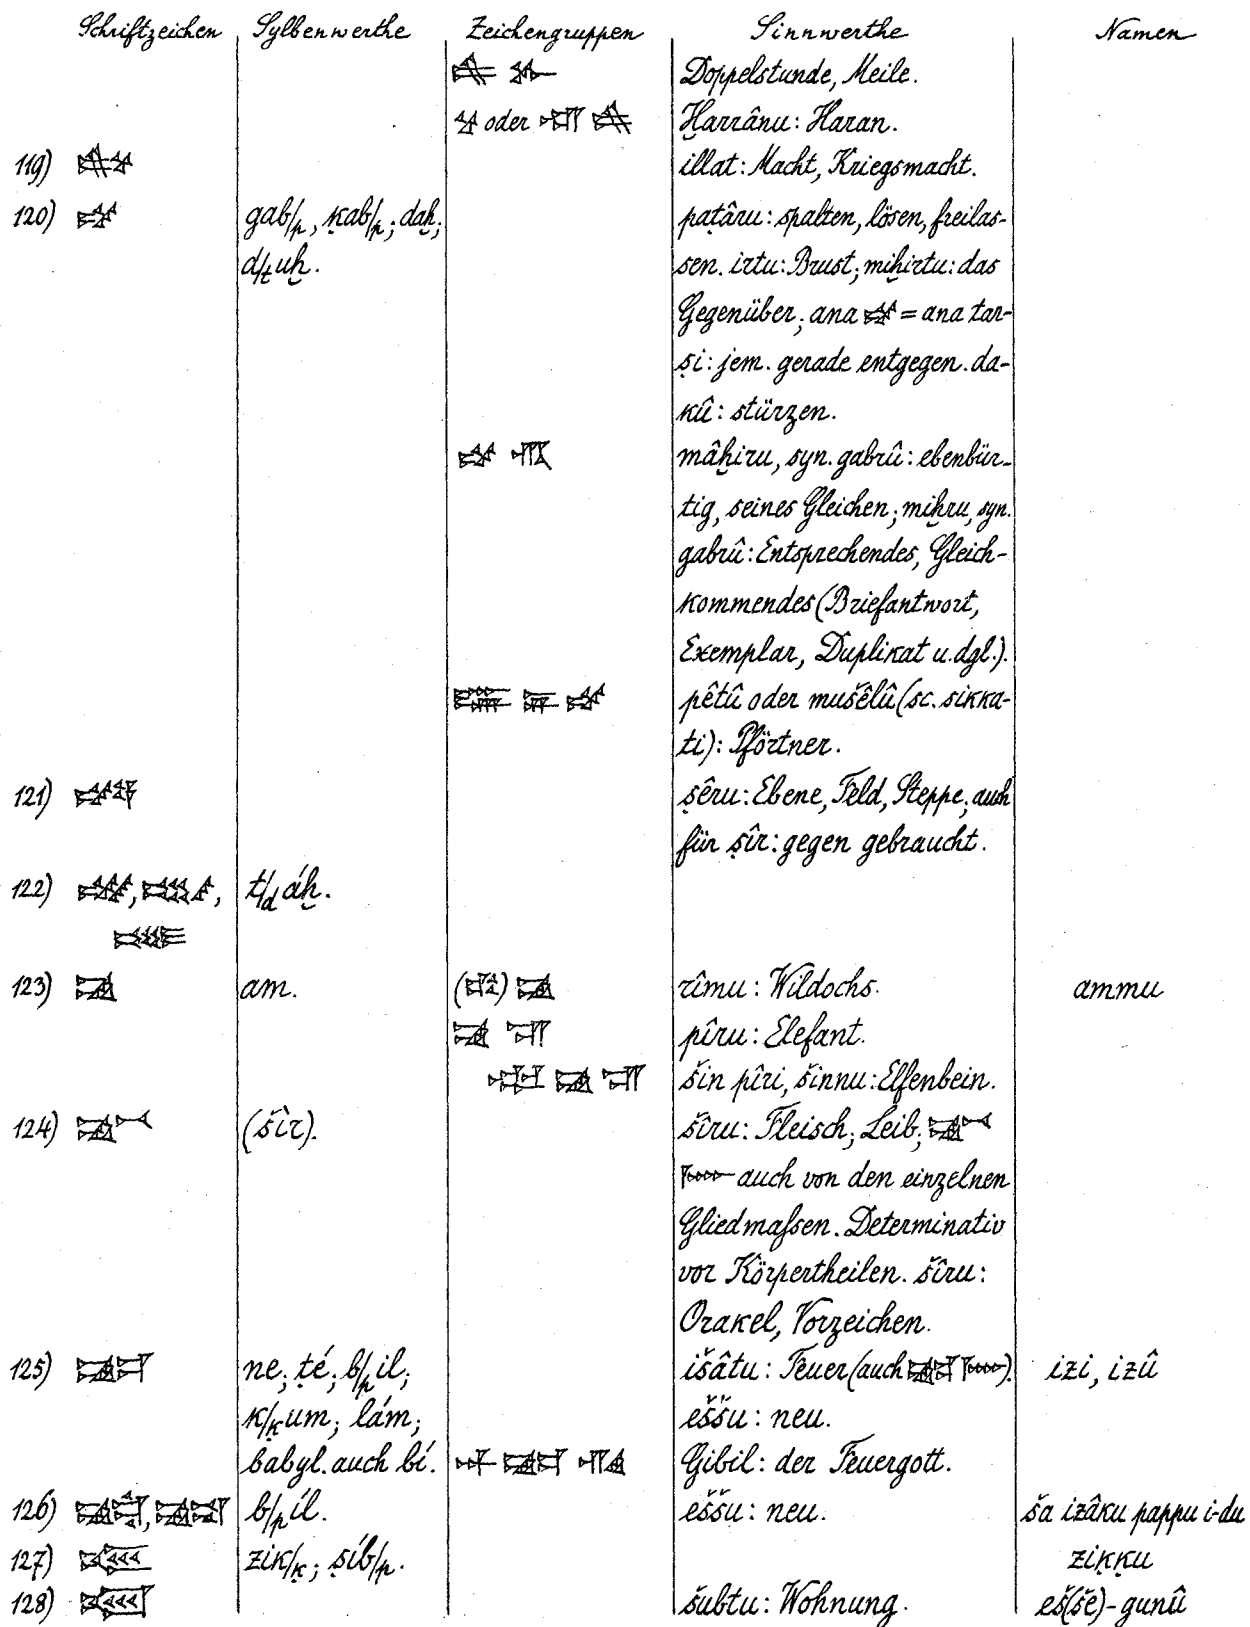 Schriftzeichen Sylbenwerthe Zeichengruppen Sinnwerthe Namen
Doppelstunde, Meile.
oder Ḫarrânu: Haran.
119) illat: Macht, Kriegsmacht.
120) gab/p, ḳab/p; daḫ; paṭâru: spalten, lösen, freilas-
d/ṭuḫ. sen. irtu: Brust; miḫirtu: das
Gegenüber; ana = ana tar-
ṣi: jem. gerade entgegen. da-
kû: stürzen.
mâḫiru, syn. gabrû: ebenbür-
tig, seines Gleichen; miḫru, syn.
gabrû: Entsprechendes, Gleich-
kommendes (Briefantwort,
Exemplar, Duplikat u. dgl.).
pêtû oder mušêlû (sc. sikka-
ti): Pförtner.
121) ṣêru: Ebene, Feld, Steppe; auch
für ṣîr: gegen gebraucht.
122) , , t/d áḫ.
123) am. ( ) rîmu: Wildochs. ammu
pîru: Elefant.
šin pîri, šinnu: Elfenbein.
124) (šîr). šîru: Fleisch; Leib;
auch von den einzelnen
Gliedmaſsen. Determinativ
vor Körpertheilen. šîru:
Orakel, Vorzeichen.
125) ne; ṭé; b/p il; išâtu: Feuer (auch ). izi, izû
k/ḳum; lám; eššu: neu.
babyl. auch bí. Gibil: der Feuergott.
126) , b/p íl. eššu: neu. ša izâku pappu i-du
127) zik/ḳ; ṣíb/p. ziḳḳu
128) šubtu: Wohnung. eš(še)-gunû